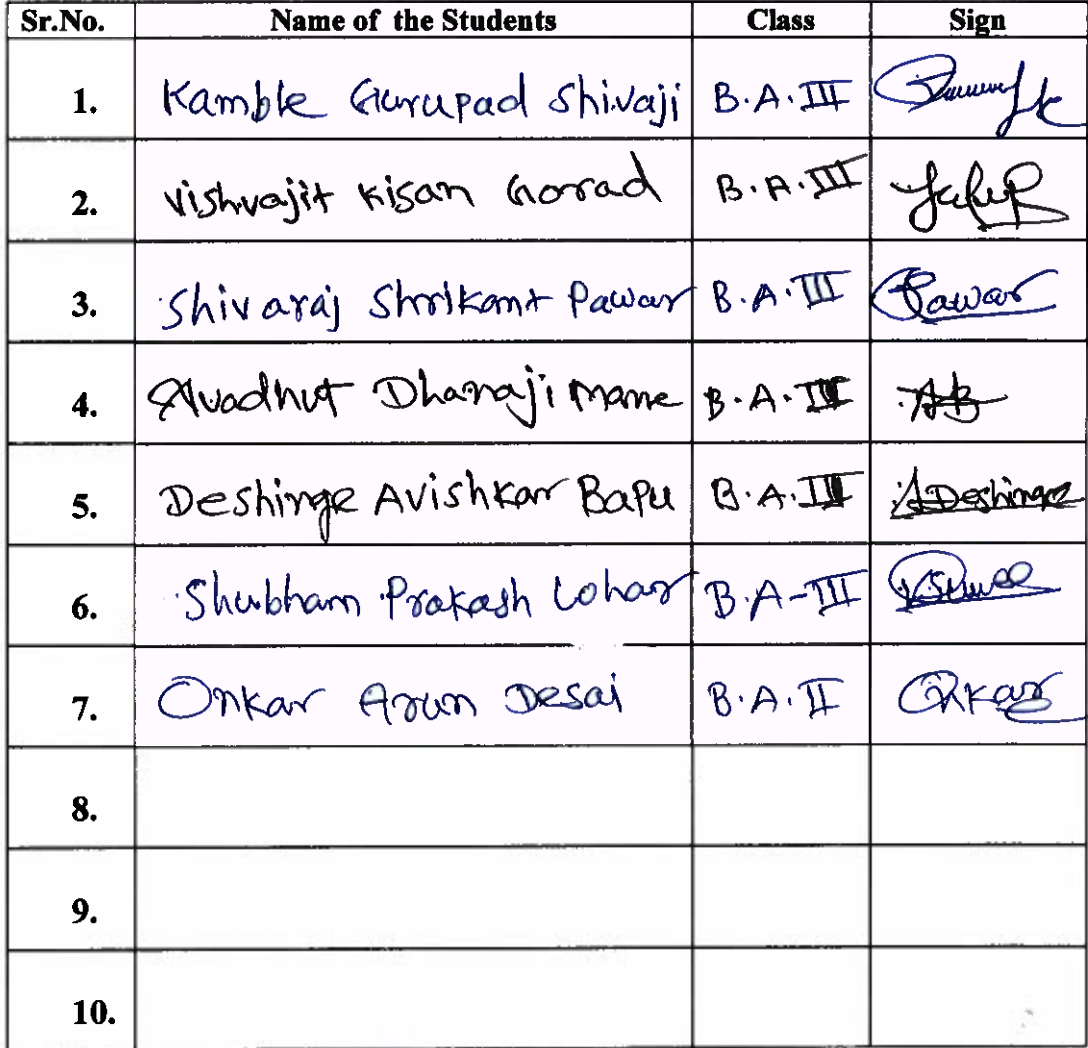 Sr.No. Name of the Students Class Sign
1. Kamble Gurupad Shivaji B.A.III
2. Vishvajit Kisan Gorad B.A.III
3. Shivaraj Shrikant Pawar B.A.III Pawar
4. Avadhut Dhanaji Mane B.A.III AB
5. Deshinge Avishkar Bapu B.A.III A.Deshinge
6. Shubham Prakash Lohar B.A-III
7. Onkar Arun Desai B.A.II Onkar
8.
9.
10.